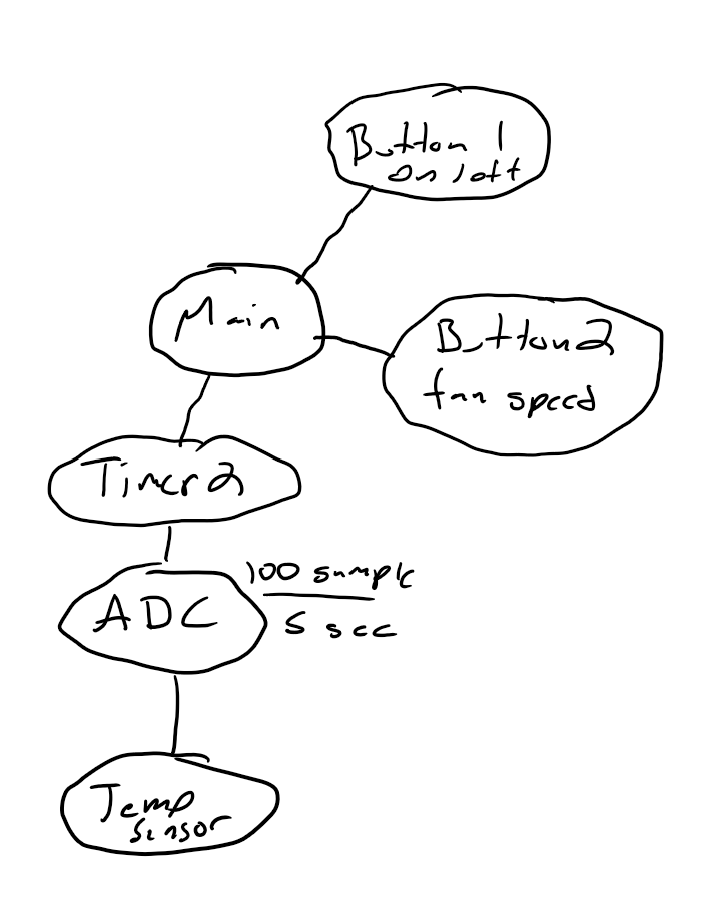 Button 1
on / off
Main
Button 2
fan speed
Timer 2
ADC
100 sample
5 sec
Temp
sensor